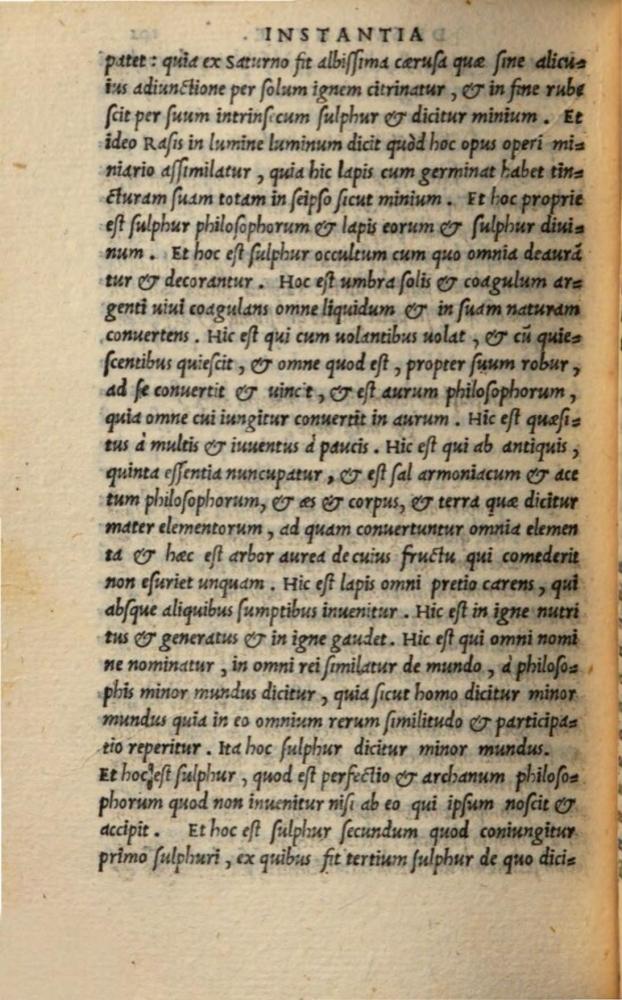 INSTANTIA
patet : quia ex Saturno fit albiſſima cæruſa quæ ſine alicu=
ius adiunctione per ſolum ignem citrinatur , & in fine rube
ſcit per ſuum intrinſecum ſulphur & dicitur minium . Et
ideo Raſis in lumine luminum dicit quòd hoc opus operi mi=
niario aſſimilatur , quia hic lapis cum germinat habet tin=
cturam ſuam totam in ſeipſo ſicut minium . Et hoc proprie
eſt ſulphur philoſophorum & lapis eorum & ſulphur diui=
num . Et hoc eſt ſulphur occultum cum quo omnia deaurã
tur & decorantur . Hoc eſt umbra ſolis & coagulum ar=
genti uiui coagulans omne liquidum & in ſuam naturam
conuertens . Hic eſt qui cum uolantibus uolat , & cũ quie=
ſcentibus quieſcit , & omne quod eſt , propter ſuum robur ,
ad ſe conuertit & uincit , & eſt aurum philoſophorum ,
quia omne cui iungitur conuertit in aurum . Hic eſt quæſi=
tus à multis & iuuentus à paucis . Hic eſt qui ab antiquis ,
quinta eſſentia nuncupatur , & eſt ſal armoniacum & ace
tum philoſophorum, & æs & corpus, & terra quæ dicitur
mater elementorum , ad quam conuertuntur omnia elemen
ta & hæc eſt arbor aurea de cuius fructu qui comederit
non eſuriet unquam . Hic eſt lapis omni pretio carens , qui
abſque aliquibus ſumptibus inuenitur . Hic eſt in igne nutri
tus & generatus & in igne gaudet . Hic eſt qui omni nomi
ne nominatur , in omni rei ſimilatur de mundo , à philoſo=
phis minor mundus dicitur , quia ſicut homo dicitur minor
mundus quia in eo omnium rerum ſimilitudo & participa=
tio reperitur . Ita hoc ſulphur dicitur minor mundus.
Et hoc eſt ſulphur , quod eſt perfectio & archanum philoſo=
phorum quod non inuenitur niſi ab eo qui ipſum noſcit &
accipit . Et hoc eſt ſulphur ſecundum quod coniungitur
primo ſulphuri , ex quibus fit tertium ſulphur de quo dici=